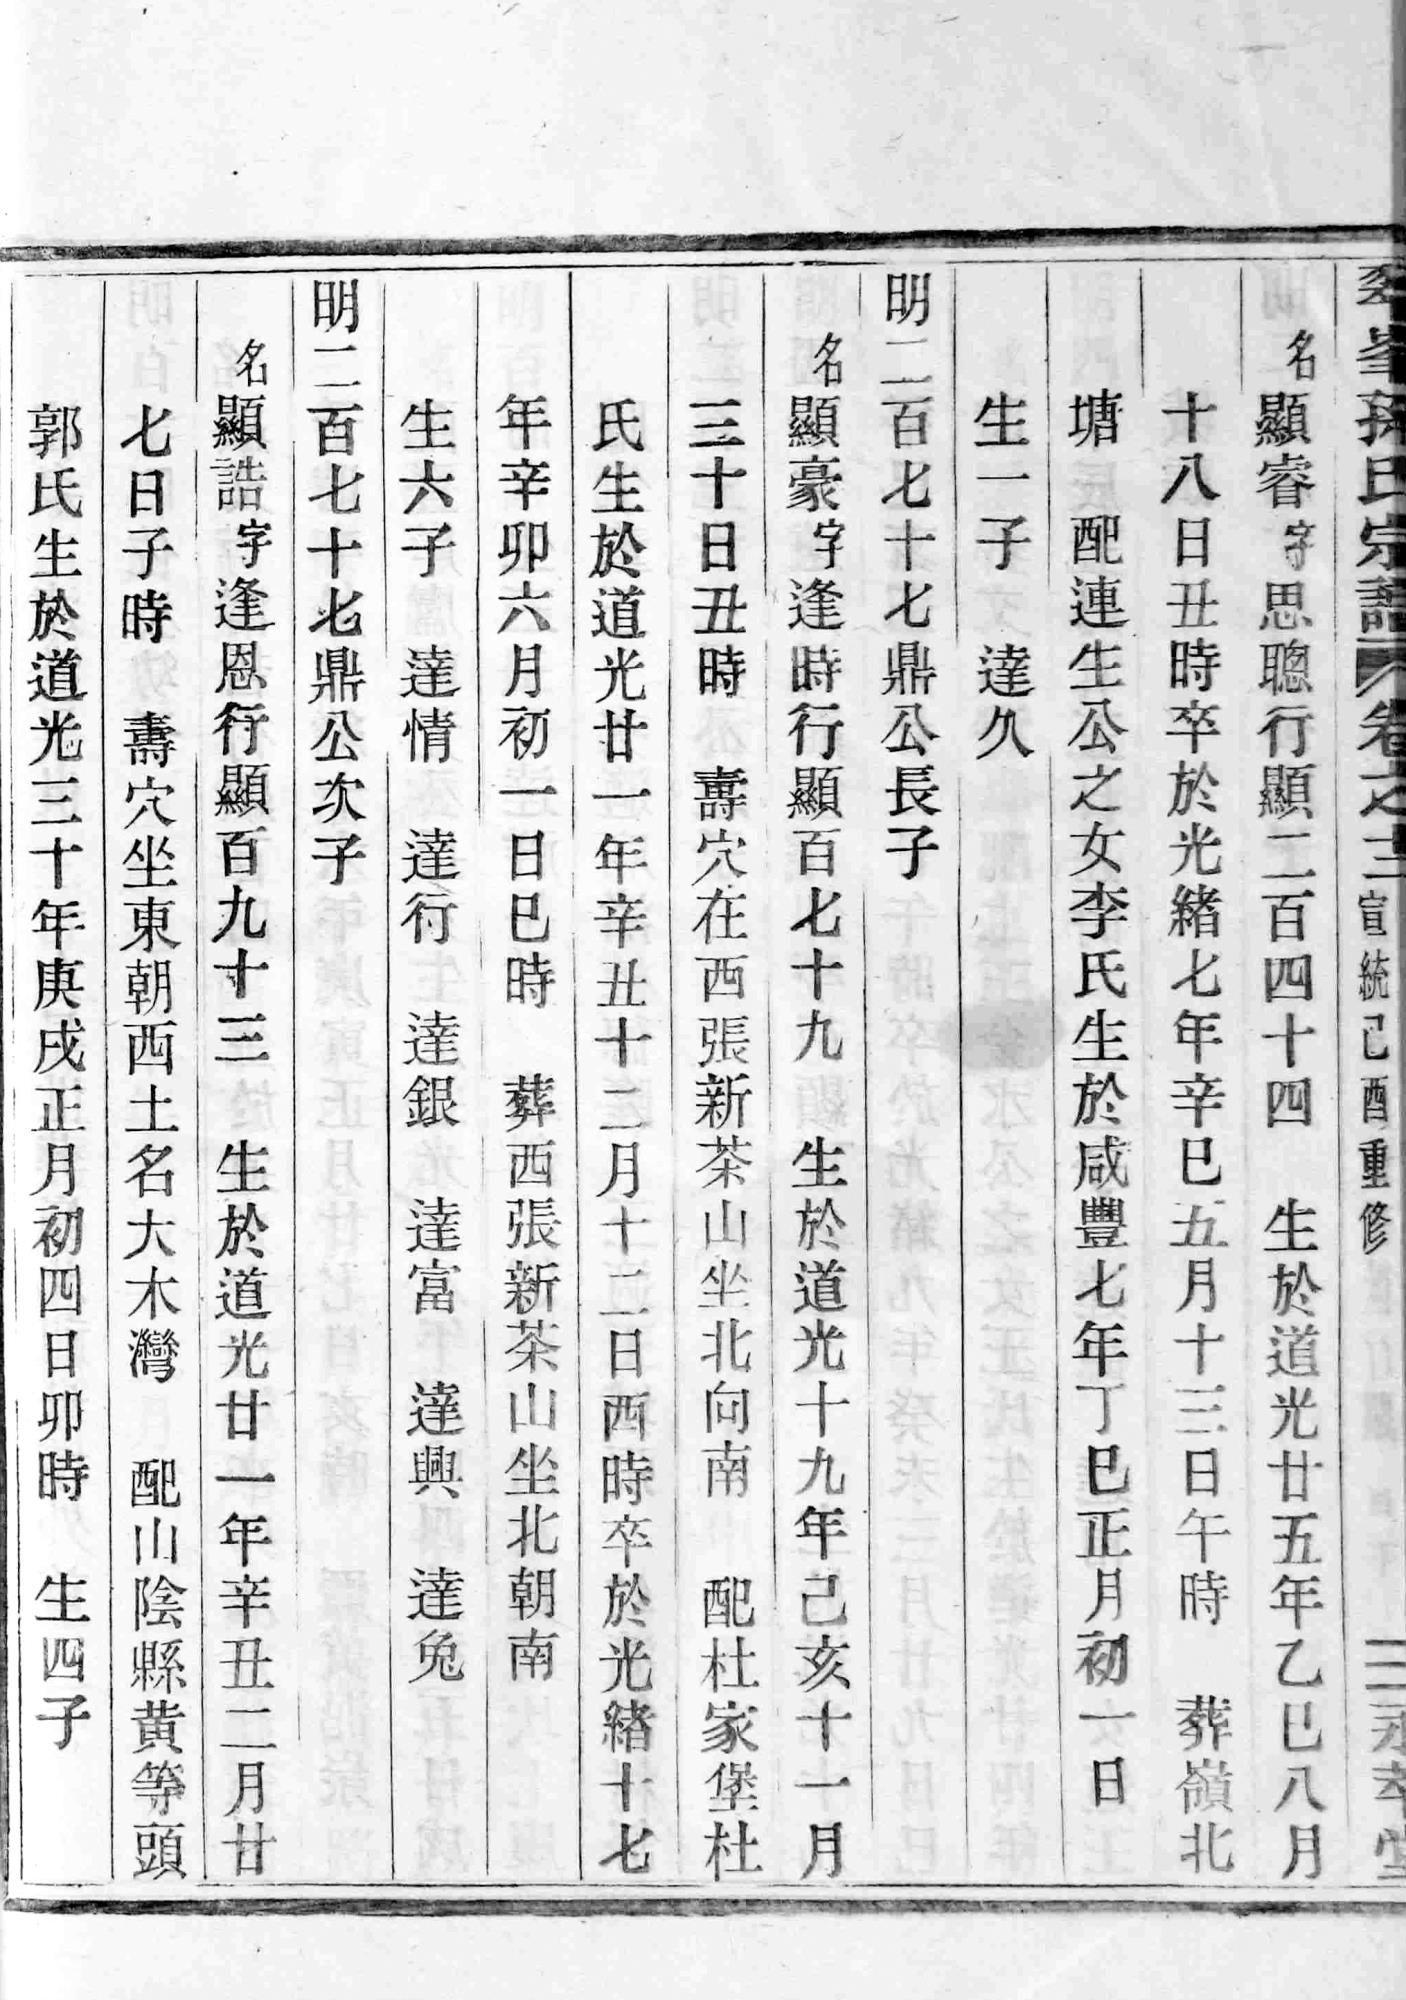 峯孫氏宗譜 卷之十二 宣統己酉重修 二 永萃堂
名顯睿字思聰行顯二百四十四 生於道光廿五年乙巳八月
十八日丑時卒於光緒七年辛巳五月十三日午時 葬嶺北
塘 配連生公之女李氏生於咸豐七年丁巳正月初一日
生一子 達久
明二百七十七鼎公長子
名顯豪字逢時行顯百七十九 生於道光十九年己亥十一月
三十日丑時 壽穴在西張新茶山坐北向南 配杜家堡杜
氏生於道光廿一年辛丑十二月十二日酉時卒於光緒十七
年辛卯六月初一日巳時 葬西張新茶山坐北朝南
生六子 達情 達行 達銀 達富 達興 達兔
明二百七十七鼎公次子
名顯誥字逢恩行顯百九十三 生於道光廿一年辛丑二月廿
七日子時 壽穴坐東朝西土名大木灣 配山陰縣黄等頭
郭氏生於道光三十年庚戌正月初四日卯時 生四子